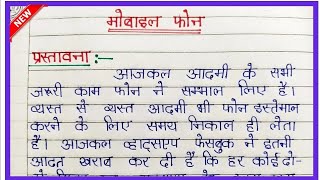 NEW
मोबाइल फोन
प्रस्तावना :-
आजकल आदमी के सभी
जरूरी काम फोन ने सम्भाल लिए हैं।
व्यस्त से व्यस्त आदमी भी फोन इस्तेमाल
करने के लिए समय निकाल ही लेता
है। आजकल व्हाट्सएप फेसबुक ने इतनी
आदत खराब कर दी है कि हर कोई दो-